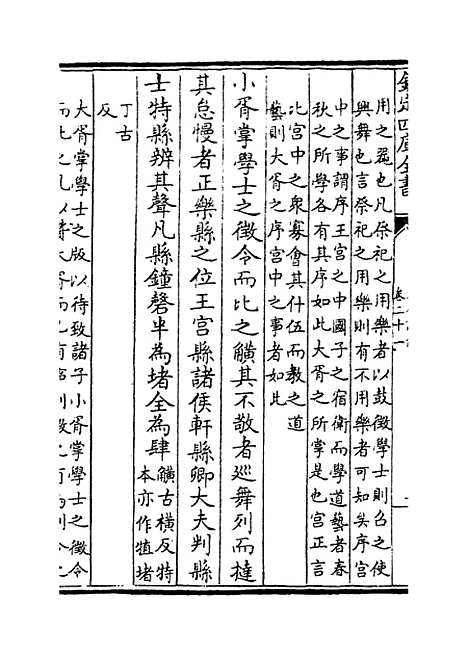 欽定四庫全書
卷二十一
用之張也凡祭祀之用樂者以鼓徵學士則召之使
興舞也言祭祀之用樂則不用樂者可知矣序宮
中之事謂序王宮之中國子之宿衛而學道藝者春
秋之所學各有其序如此大胥之所掌是也宮正言
比宮中之衆寡會其什伍而教之道
藝則大胥之序宮中之事者如此
小胥掌學士之徵令而比之觵其不敬者巡舞列而撻
其怠慢者正樂縣之位王宮縣諸侯軒縣卿大夫判縣
士特縣辨其聲凡縣鐘磬半為堵全為肆
觵古横反特
本亦作犆堵
丁古
反
大胥掌學士之版以待致諸子小胥掌學士之徵令